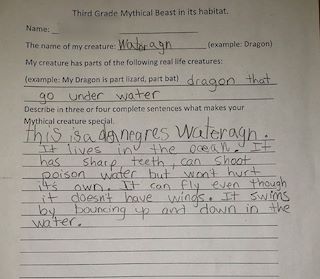 Third Grade Mythical Beast in its habitat.
Name:
The name of my creature: Wateragn (example: Dragon)
My creature has parts of the following real life creatures:
(example: My Dragon is part lizard, part bat) dragon that
go under water
Describe in three or four complete sentences what makes your
Mythical creature special.
this is a dangegres Wateragn.
It lives in the ocean. It
has sharp teeth, can shoot
poison water but won't hurt
it's own. It can fly even though
it doesn't have wings. It swims
by bouncing up and down in the
water.